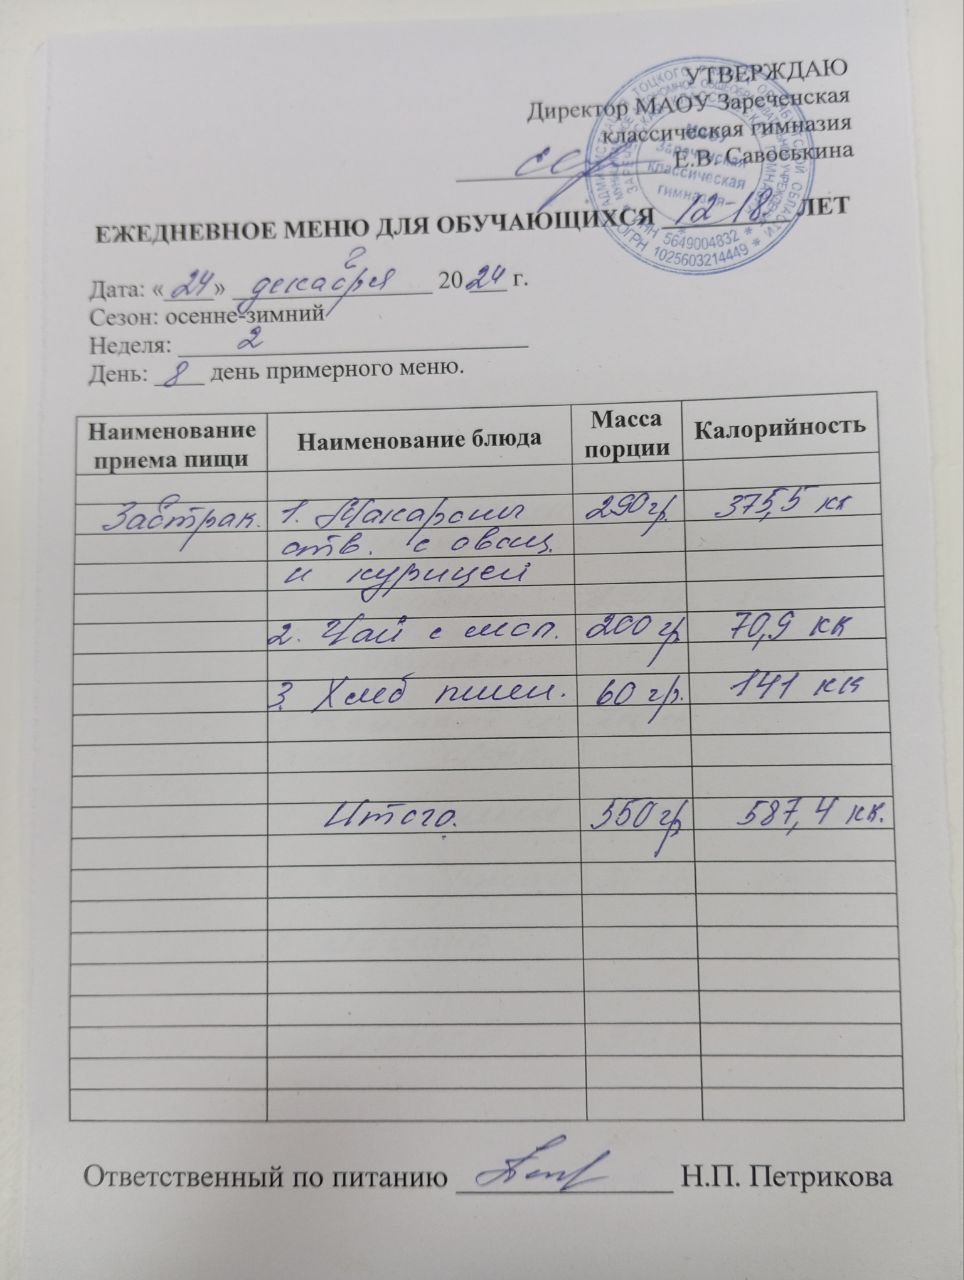 УТВЕРЖДАЮ
Директор МАОУ Зареченская
классическая гимназия
Е.В. Савоськина
ЕЖЕДНЕВНОЕ МЕНЮ ДЛЯ ОБУЧАЮЩИХСЯ 12-18 ЛЕТ
Дата: «24» декабря 2024 г.
Сезон: осенне-зимний
Неделя: 2
День: 8 день примерного меню.
Наименование приема пищи Наименование блюда Масса порции Калорийность
Завтрак. 1. Макароны 290 гр. 375,5 кк
отв. с овощ.
и курицей
2. Чай с мол. 200 гр 70,9 кк
3. Хлеб пшен. 60 гр. 141 кк
Итого. 550 гр 587,4 кк.
Ответственный по питанию Н.П. Петрикова
Зареченская
классическая
гимназия
ИНН 5649004832
ОГРН 1025603214449